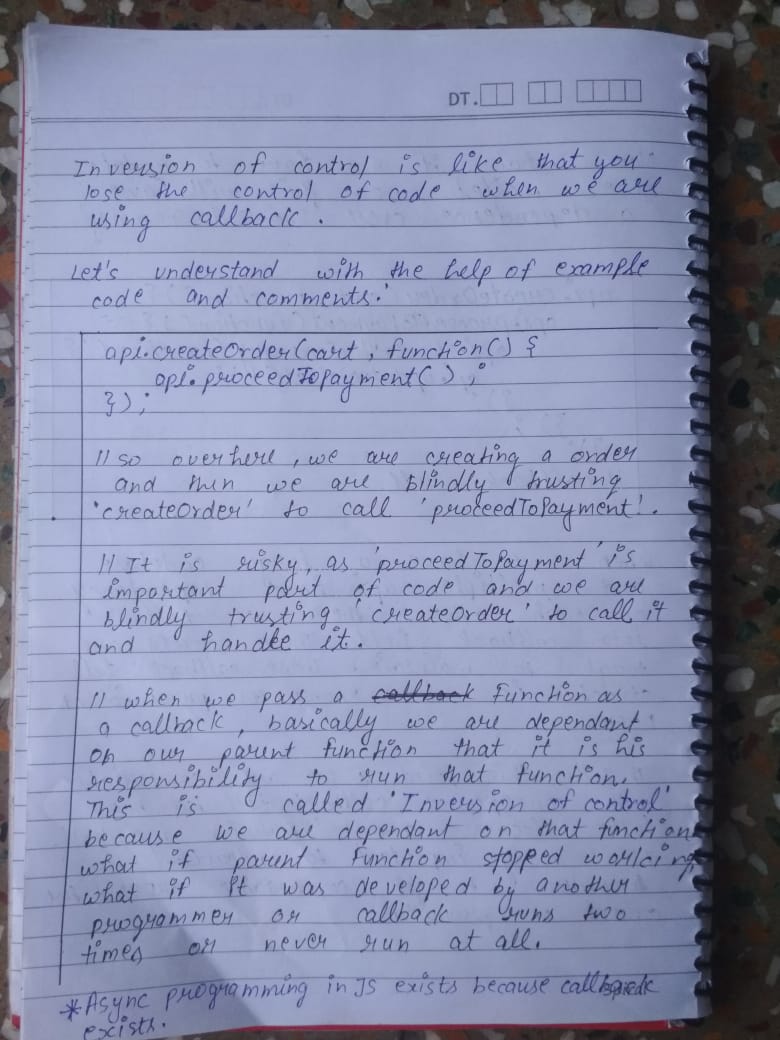 DT.
Inversion of control is like that you
lose the control of code when we are
using callback.
Let's understand with the help of example
code and comments.'
api.createOrder(cart, function() {
api.proceedToPayment();
});
// so over here, we are creating a order
and then we are blindly trusting
'createOrder' to call 'proceedToPayment'.
// It is risky, as 'proceedToPayment' is
important part of code and we are
blindly trusting 'createOrder' to call it
and handle it.
// when we pass a callback function as
a callback, basically we are dependant
on our parent function that it is his
responsibility to run that function.
This is called 'Inversion of control'
because we are dependant on that function
what if parent function stopped working,
what if it was developed by another
programmer or callback runs two
times or never run at all.
*Async programming in JS exists because callback
exists.